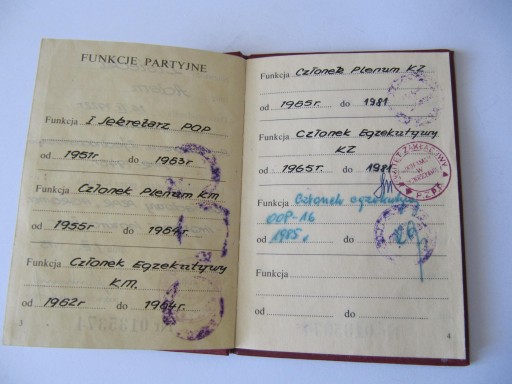 FUNKCJE PARTYJNE
Funkcja I Sekretarz POP
od 1951r do 1963r
Funkcja Członek Plenum KM
od 1955r do 1964r
Funkcja Członek Egzekutywy
K.M.
od 1962r do 1964r.
3
Funkcja Członek Plenum KZ
od 1965r. do 1981
Funkcja Członek Egzekutywy
KZ
od 1965r. do 1981
Funkcja Członek egzekutywy
OOP-16
od 1985r. do
Funkcja
od do
4